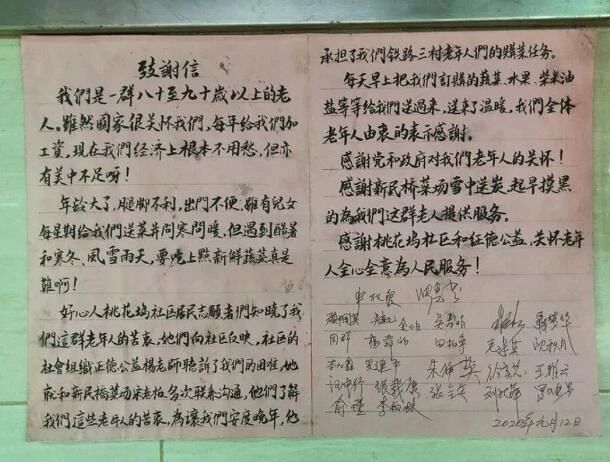 致謝信
我們是一群八十至九十歲以上的老
人。雖然國家很关怀我們，每年给我們加
工資，現在我們经济上根本不用愁，但亦
有美中不足呀！
年龄大了，腿脚不利，出門不便，雖有兒女
每星期给我們送菜并问寒问暖，但遇到酷暑
和寒冬、風雪雨天，要燒上點新鲜蔬菜真是
難啊！
好心人桃花坞社区居民志願者們知曉了我
們這群老年人的苦衷，她們向社区反映，社區的
社會组織正德公益楊老師聽訴了我們的困难，她
就和新民橋菜场宋老板多次联系沟通，他們了解
我們這些老年人的苦衷，為讓我們安度晚年，他
承担了我們铁路三村老年人們的購菜任务。
每天早上把我們訂購的蔬菜、水果、柴米油
盐等等给我們送過来，送来了温暖，我們全体
老年人由衷的表示感謝。
感謝党和政府对我們老年人的关怀！
感謝新民橋菜场雪中送炭，起早摸黑
的為我們这群老人提供服务。
感謝桃花坞社区和正德公益，关怀老年
人全心全意為人民服务！
沈秋月
朱佩英 王雅云
俞瑾
2020年元月12日